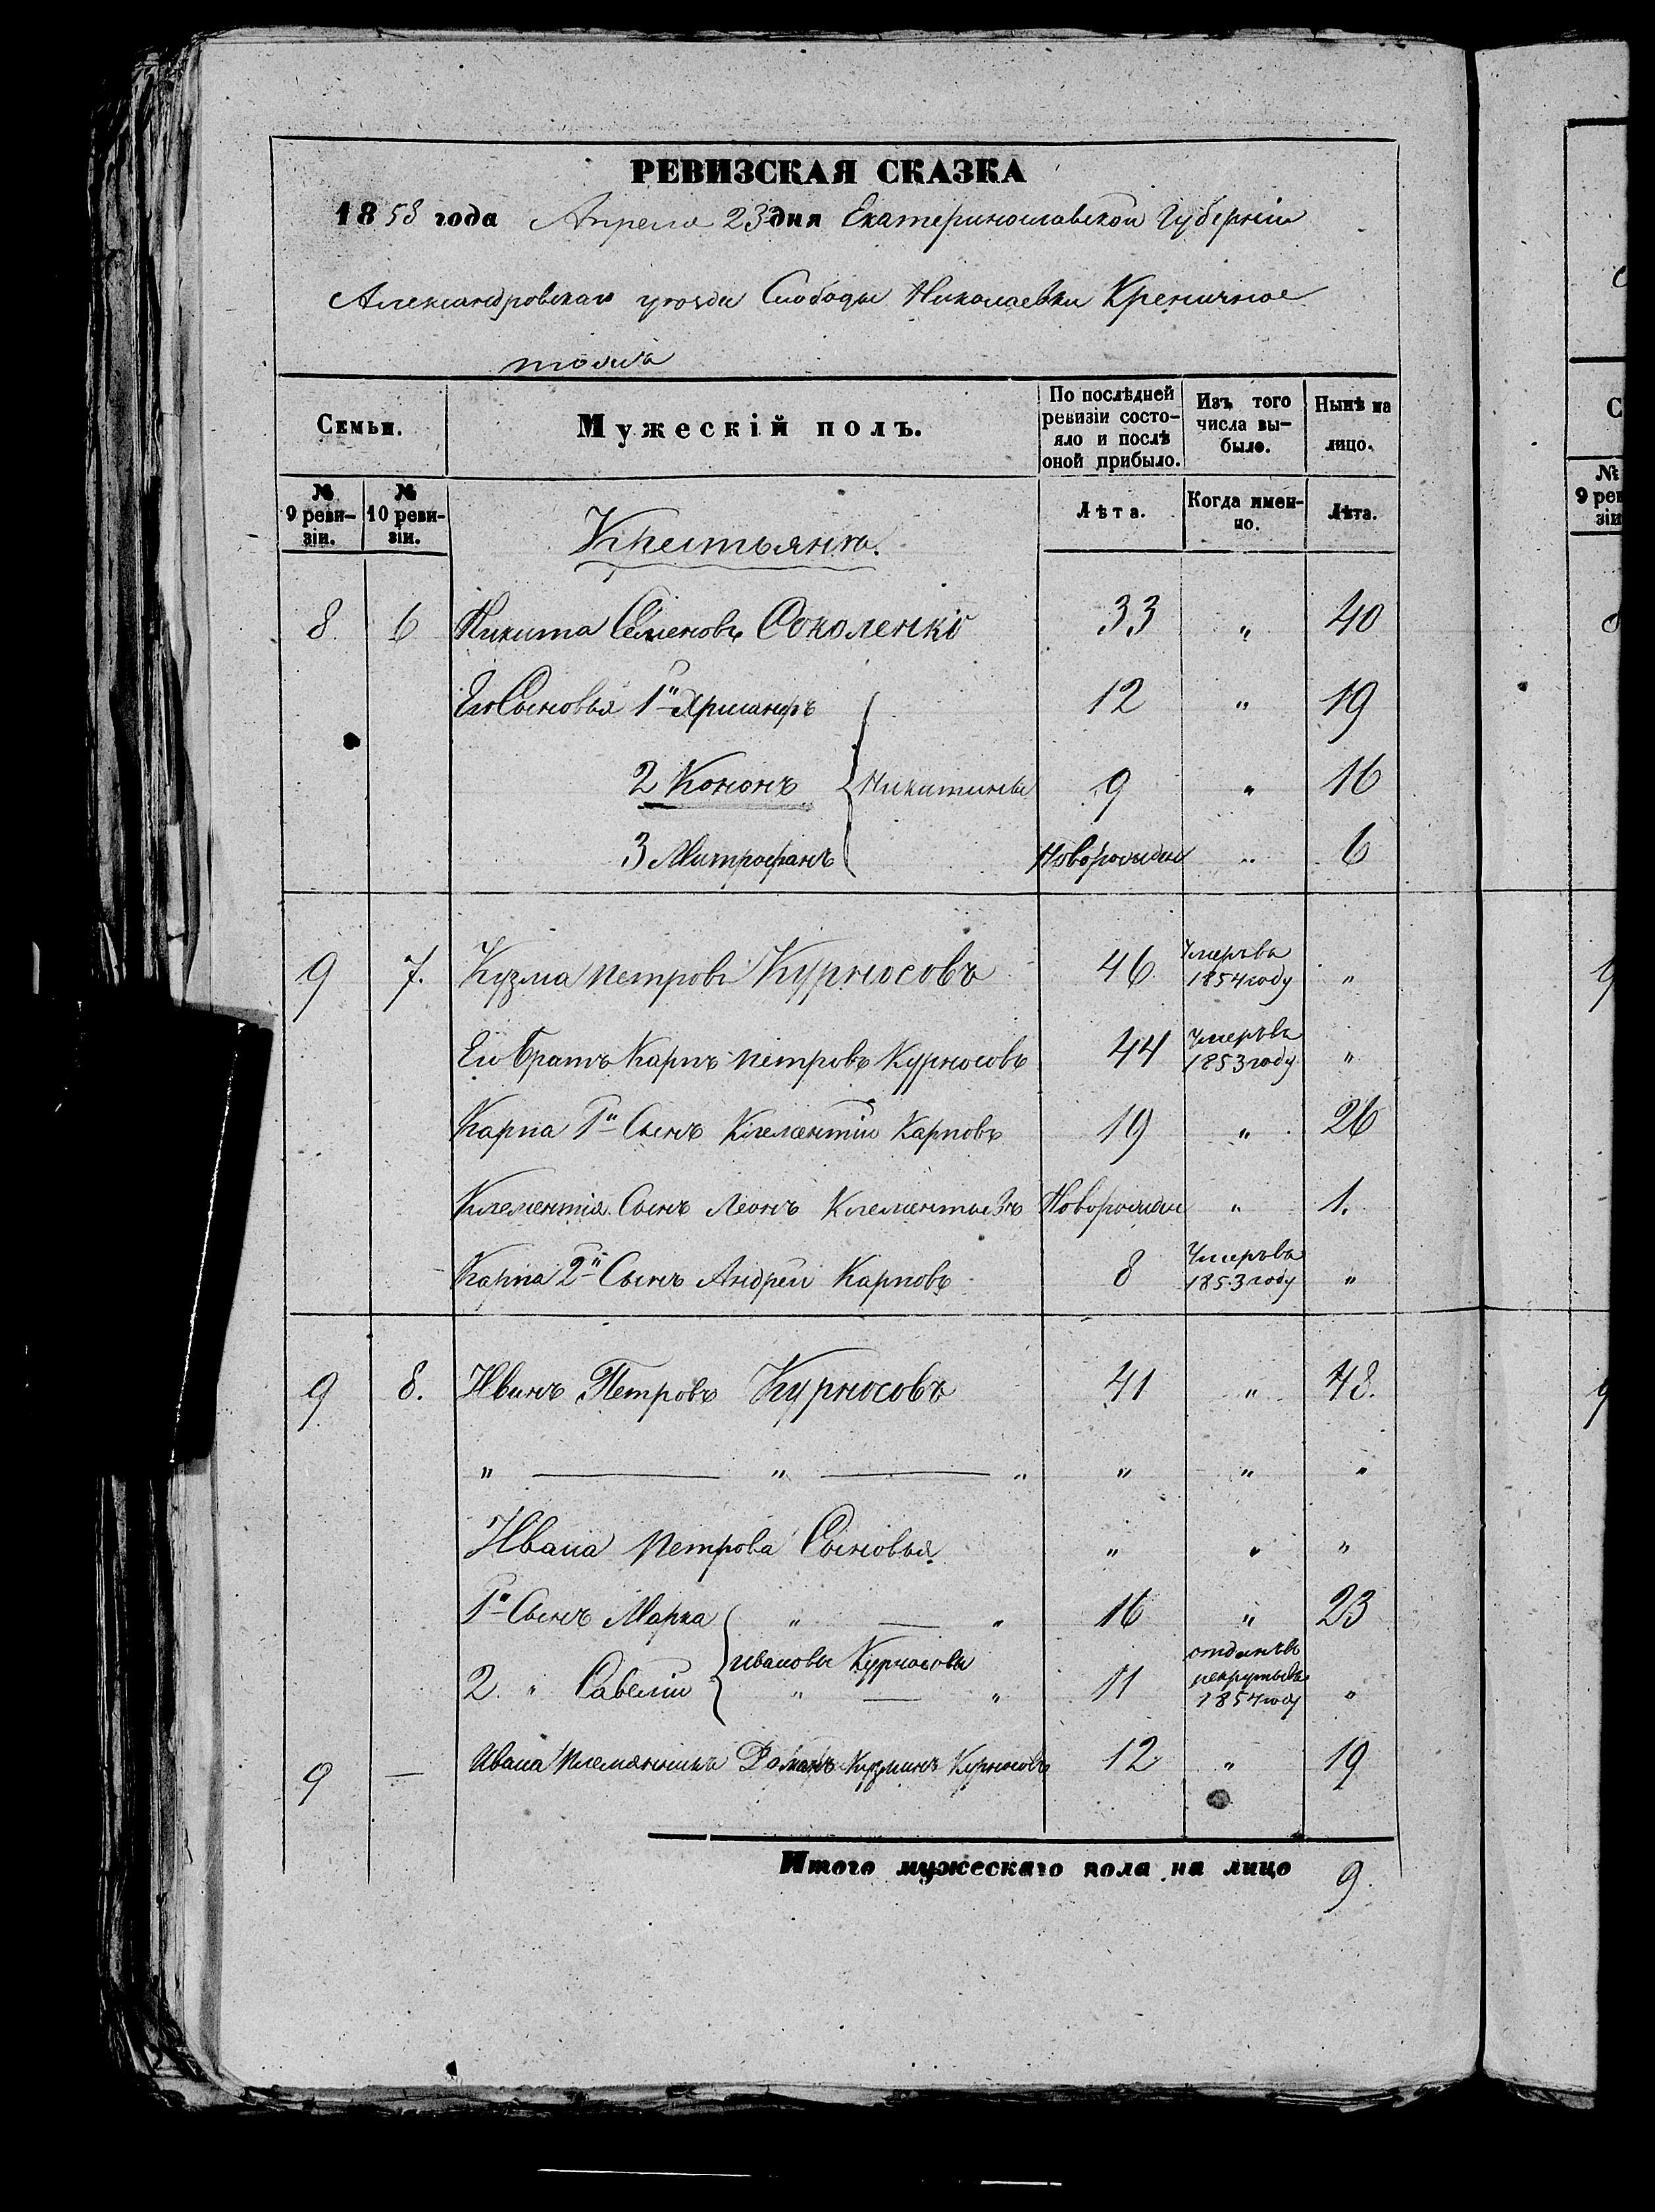 РЕВИЗСКАЯ СКАЗКА
1858 года Апреля 23 дня Екатеринославской Губерніи
Александровскаго уѣзда Слободы Николаевки Кременчное
тожъ
Семьи.
Мужескій полъ.
По послѣдней ревизіи состо-
яло и послѣ
оной прибыло.
Изъ того
числа вы-
было.
Нынѣ на
лицо.
№ 9 реви-
зіи.
№ 10 реви-
зіи.
Лѣта.
Когда имен-
но.
Лѣта.
Крестьяне.
8 6 Никита Семеновъ Соколенко 33 " 40
Его Сыновья 1й 12 " 19
2 Кононъ Никитины 9 " 16
3 Митрофанъ Новорожден " 6
9 7. Кузма Петровъ Курносовъ 46 Умеръ въ 1854 году "
Его Братъ Карпъ Петровъ Курносовъ 44 Умеръ въ 1853 году "
Карпа 1й Сынъ Клементій Карповъ 19 " 26
Клементія Сынъ Леонъ Клементьевъ Новорожден " 1.
Карпа 2й Сынъ Андрей Карповъ 8 Умеръ въ 1853 году "
9 8. Иванъ Петровъ Курносовъ 41 " 48.
" — " — " " " "
Ивана Петрова Сыновья " " "
1й Сынъ Марка " — " 16 " 23
2. " Савелій Ивановы Курносовы " — " 11 отданъ въ рекруты въ 1854 году "
9 — Ивана Племянникъ Романъ Кузминъ Курносовъ 12 " 19
Итого мужескаго пола на лицо 9.